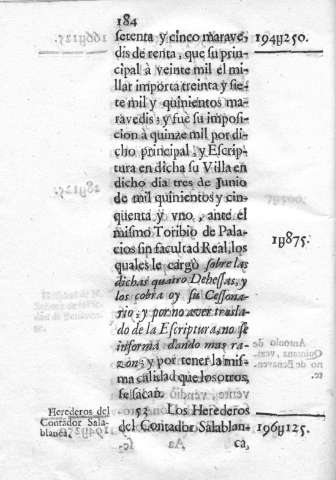 184
setenta y cinco marave-
dis de renta, que su prin-
cipal à veinte mil el mi-
llar importa treinta y sie-
te mil y quinientos ma-
ravedis; y fuè su imposi-
cion à quinze mil por di-
cho principal, y Escrip-
tura en dicha su Villa en
dicho dia tres de Junio
de mil quinientos y cin-
quenta y vno, ante el
mismo Toribio de Pala-
cios sin facultad Real, los
quales le cargò sobre las
dichas quatro Dehessas, y
los cobra oy su Cessona-
rio; y por no aver trasla-
do de la Escriptura, no se
informa dando mas ra-
zon; y por tener la mis-
ma calidad que los otros,
se sacan.
52 Los Herederos
del Contador Salablan-
ca,
Aa
194y250.
1y875.
196y125.
Herederos del
Contador Sala-
blanca.